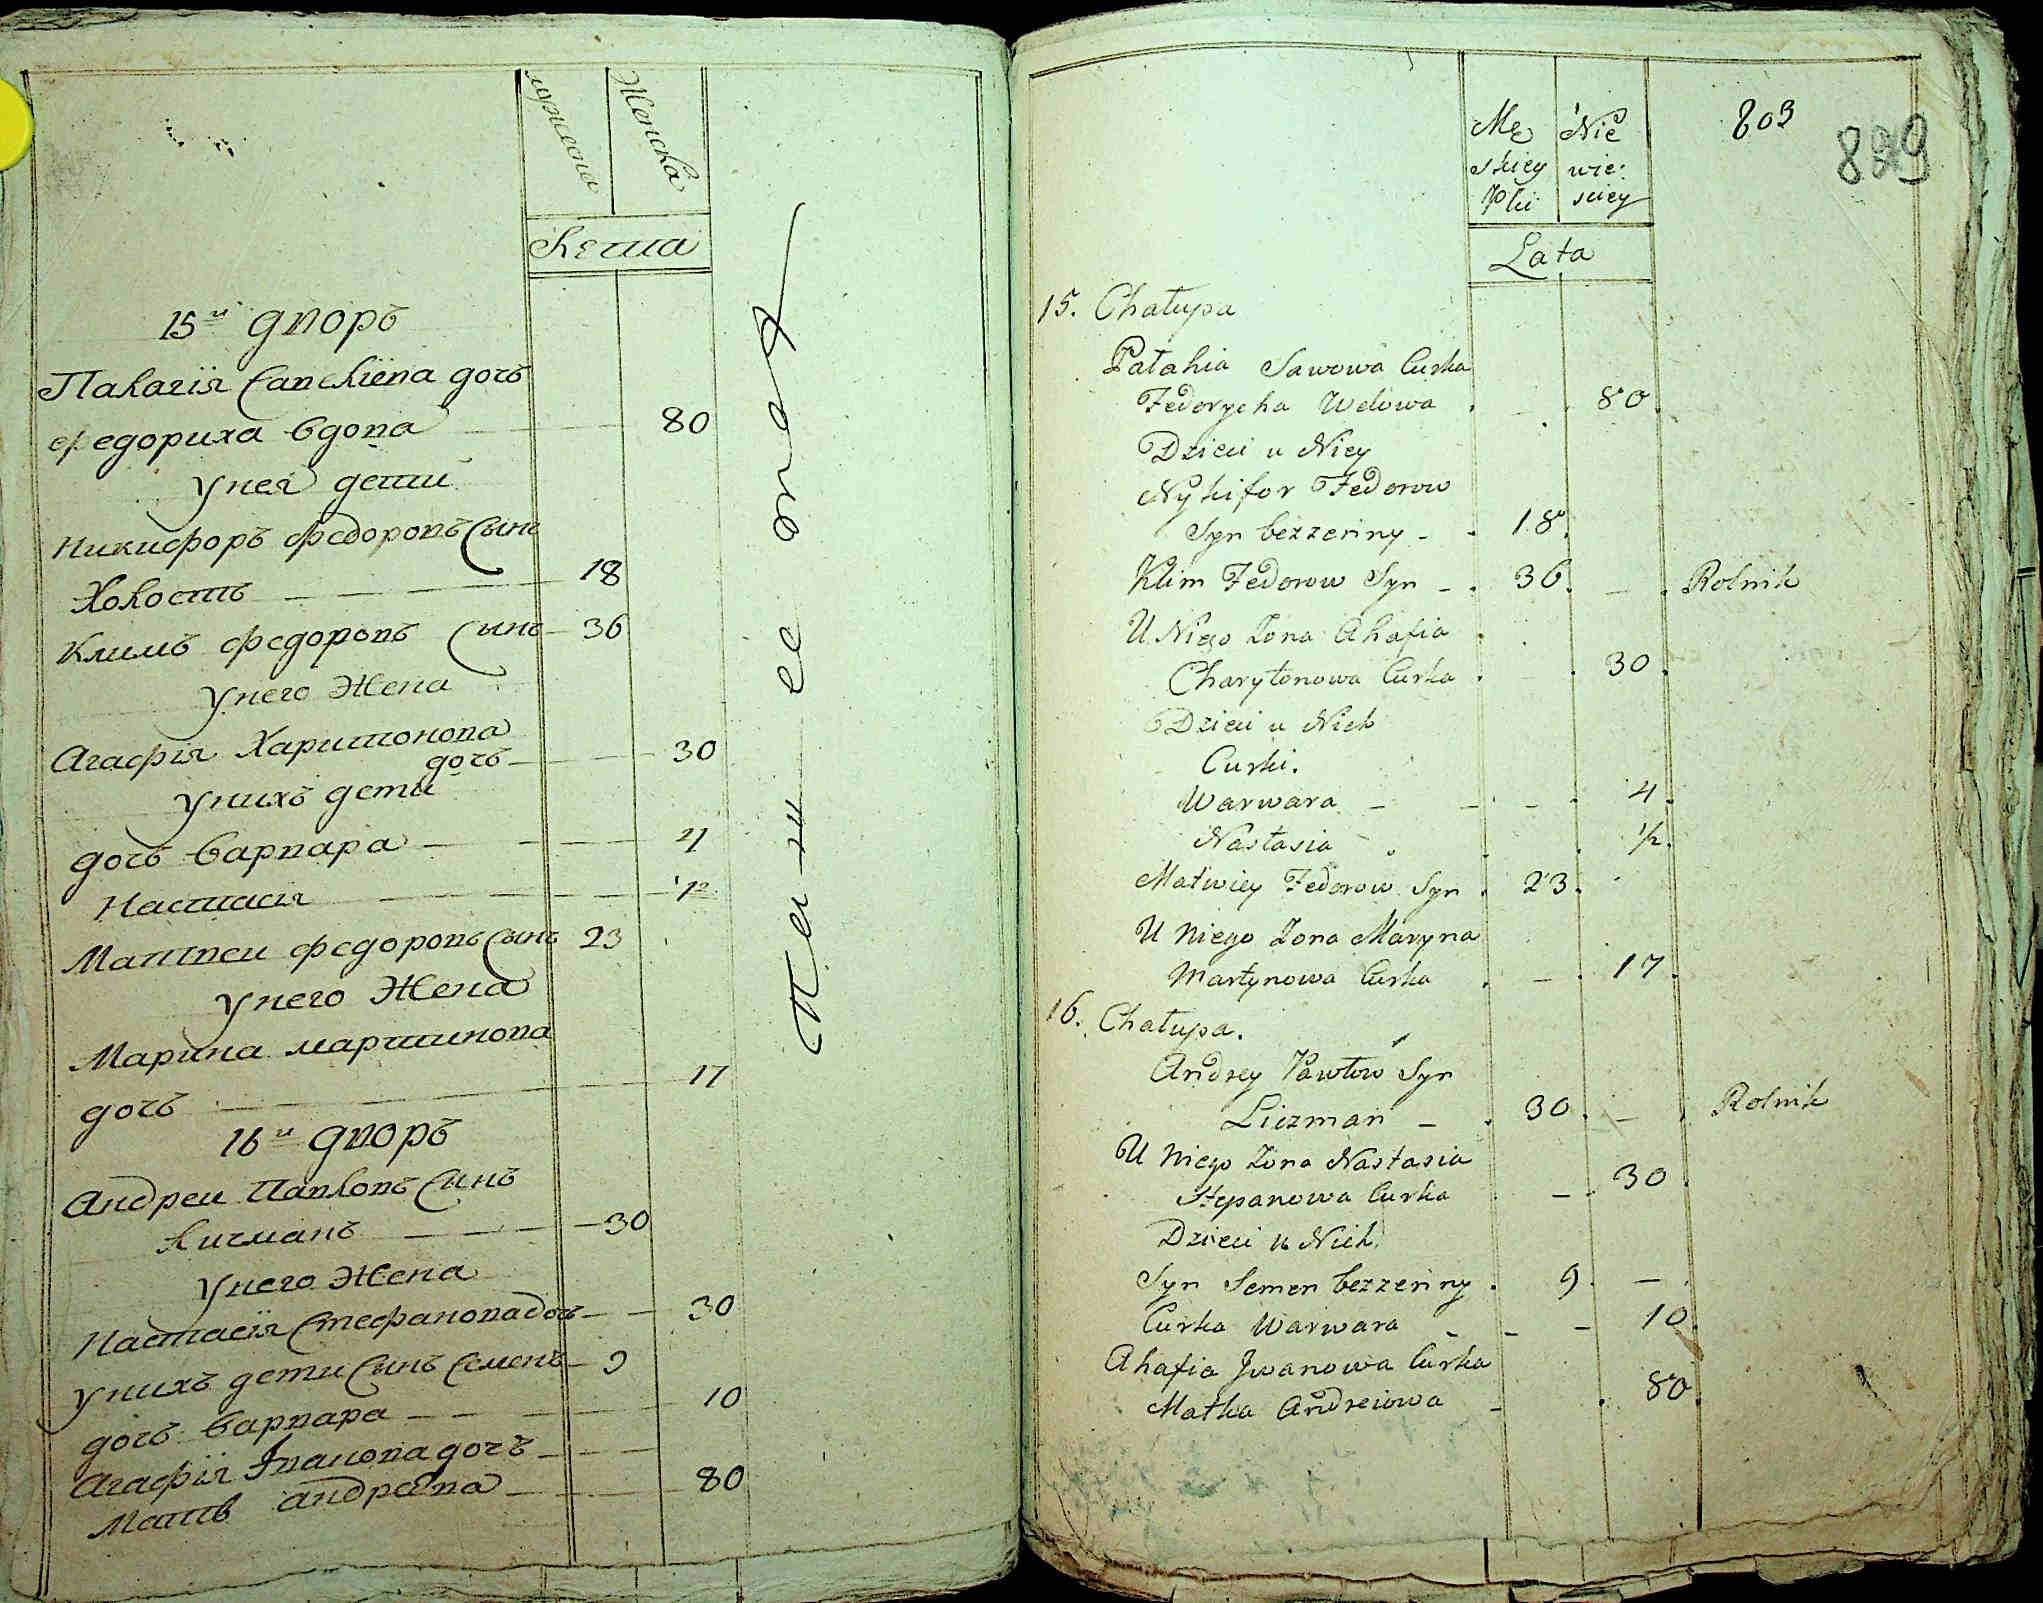 мужеска Женска
Лета
15й дворъ
Палагія Савскіева дочь
Федориха вдова 80
У нея дети
Никифоръ Федоровъ Сынъ
Холостъ 18
Климъ Федоровъ Сынъ 36
У него Жена
Агафія Харитонова
дочь 30
У нихъ дети
дочь Варвара 4
Настасія 1/2
Матвеи Федоровъ Сынъ 23
У него Жена
Марина мартинова
дочь 17
16й дворъ
Андреи Павловъ Синъ
Личманъ 30
У него Жена
Настасія Стефанова дочь 30
У нихъ дети Синъ Семенъ 9
дочь Варвара 10
Агафія Іванова дочь
Мать андреева 80
803
899
Mę Nie
skiey wie:
Płci skiey
Lata
15. Chałupa
Pałahia Sawowa Curka
Fedorycha Wdowa 80.
Dzieci u Niey
Nykifor Fedorow
Syn bezzenny 18.
Klim Fedorow Syn 36. Rolnik
U Niego Zona Ahafia
Charytonowa Curka 30.
Dzieci u Nich
Curki.
Warwara 4.
Nastasia 1/2.
Matwiey Fedorow Syn 23.
U Niego Zona Maryna
Martynowa Curka 17.
16. Chałupa.
Andrey Pawłow Syn
Liczman 30. Rolnik
U Niego Zona Nastasia
Stepanowa Curka 30.
Dzieci u Nich
Syn Semen bezzenny 9.
Curka Warwara 10.
Ahafia Jwanowa Curka
Matka Andreiowa 80.